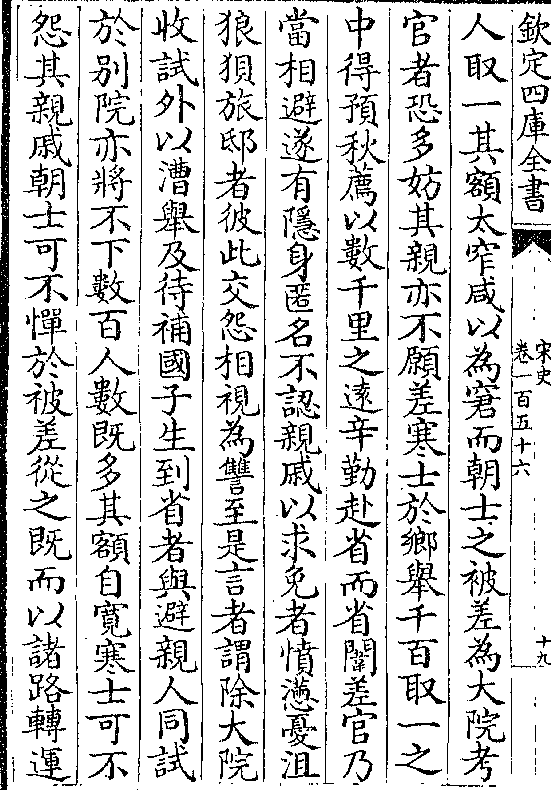 欽定四庫全書
宋史
卷一百五十六
十九
人取一其額太窄咸以為窘而朝士之被差為大院考
官者恐多妨其親亦不願差寒士於鄉舉千百取一之
中得預秋薦以數千里之逺辛勤赴省而省闈差官乃
當相避遂有隱身匿名不認親戚以求免者憤懣憂沮
狼狽旅邸者彼此交怨相視為讐至是言者謂除大院
收試外以漕舉及待補國子生到省者與避親人同試
於别院亦將不下數百人數既多其額自寛寒士可不
怨其親戚朝士可不憚於被差從之既而以諸路轉運